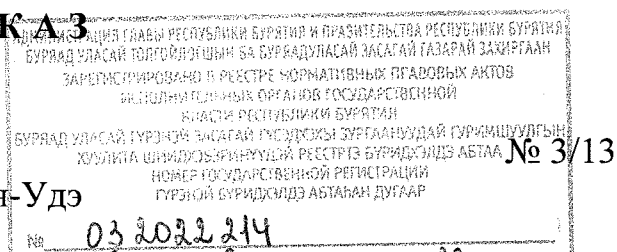 КАЗ
АДМИНИСТРАЦИЯ ГЛАВЫ РЕСПУБЛИКИ БУРЯТИЯ И ПРАВИТЕЛЬСТВА РЕСПУБЛИКИ БУРЯТИЯ
БУРЯАД УЛАСАЙ ТОЛГОЙЛОГШЫН БА БУРЯАД УЛАСАЙ ЗАСАГАЙ ГАЗАРАЙ ЗАХИРГААН
ЗАРЕГИСТРИРОВАНО В РЕЕСТРЕ НОРМАТИВНЫХ ПРАВОВЫХ АКТОВ
ИСПОЛНИТЕЛЬНЫХ ОРГАНОВ ГОСУДАРСТВЕННОЙ
ВЛАСТИ РЕСПУБЛИКИ БУРЯТИЯ
БУРЯАД УЛАСАЙ ГҮРЭНЭЙ ЗАСАГАЙ
РЕЕСТРТЭ БҮРИДХЭЛДЭ АБТАА
№ 3/13
НОМЕР ГОСУДАРСТВЕННОЙ РЕГИСТРАЦИИ
ГҮРЭНЭЙ БҮРИДХЭЛДЭ АБТАҺАН ДУГААР
н-Удэ
№ 032022214